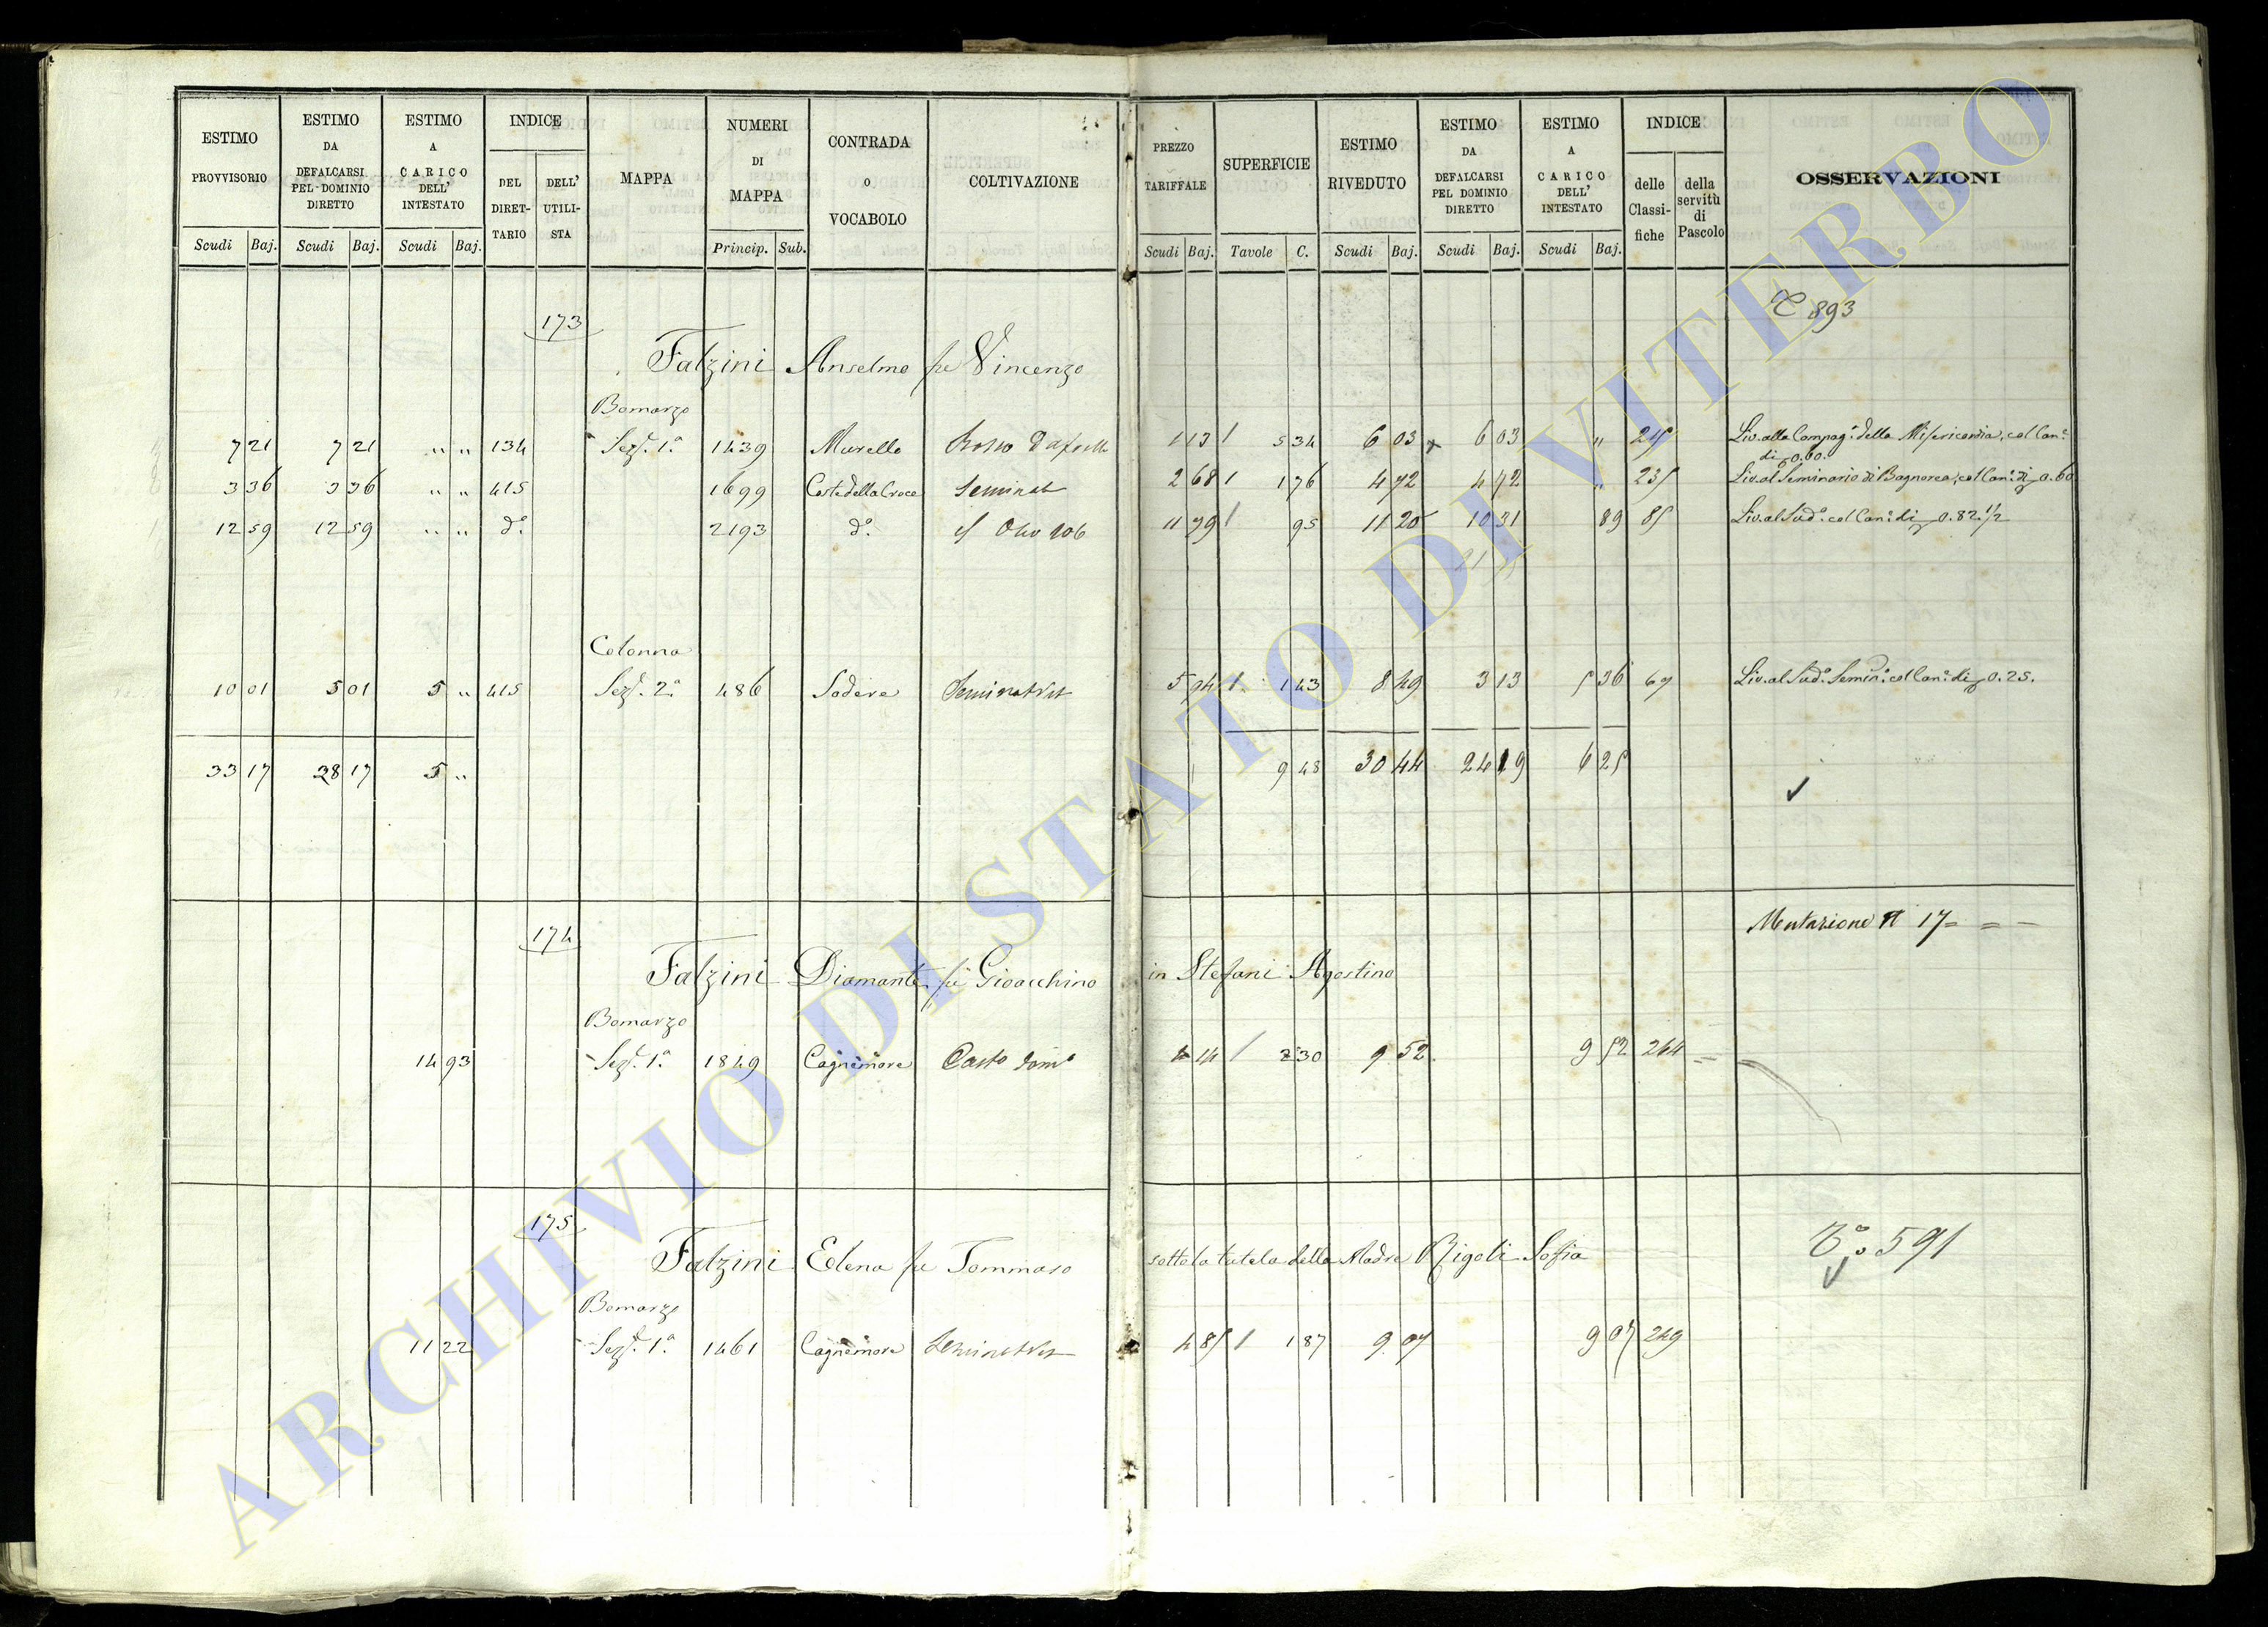 ESTIMO PROVVISORIO Scudi Baj.
ESTIMO DA DEFALCARSI PEL DOMINIO DIRETTO Scudi Baj.
ESTIMO A CARICO DELL' INTESTATO Scudi Baj.
INDICE DEL DIRET-TARIO DELL' UTILI-STA
MAPPA
NUMERI DI MAPPA Princip. Sub.
CONTRADA O VOCABOLO
COLTIVAZIONE
PREZZO TARIFFALE Scudi Baj.
SUPERFICIE Tavole C.
ESTIMO RIVEDUTO Scudi Baj.
ESTIMO DA DEFALCARSI PEL DOMINIO DIRETTO Scudi Baj.
ESTIMO A CARICO DELL' INTESTATO Scudi Baj.
INDICE delle Classi-fiche della servitù di Pascolo
OSSERVAZIONI
893
173
Falzini Anselmo fu Vincenzo
Bomarzo
7 21 7 21 " " 134 Sez. 1a 1439 Murello 1 13 5 34 6 03 6 03 " 245 Liv. alla Compag.a della Misericordia, col Can.e di 0.60.
3 36 3 36 " " 415 1699 Costa della Croce Seminat 2 68 1 76 4 72 4 72 " 235 Liv. al Seminario di Bagnorea, col Can.e di 0.60
12 59 12 59 " " d.o 2193 d.o 11 79 95 11 20 10 31 89 85 Liv. al Sud.o col Can.e di 0.82 1/2
Colonna
10 01 5 01 5 " 415 Sez. 2a 486 Sodere Seminat Vit 5 94 1 43 8 49 3 13 5 36 67 Liv. al Sud.o Semin.o col Can.e di 0.25.
33 17 28 17 5 " 9 48 30 44 24 19 6 25
Mutazione N 17 = = —
174
Falzini Diamante fu Gioacchino in Stefani Agostino
Bomarzo
14 93 Sez. 1a 1849 Cagnemore 4 14 2 30 9 52 9 52 264
591
175
Falzini Elena fu Tommaso sotto la tutela della Madre Rigoli Sofia
Bomarzo
11 22 Sez. 1a 1461 Cagnemore Seminat Vit 4 85 1 87 9 07 9 07 249
ARCHIVIO DI STATO DI VITERBO